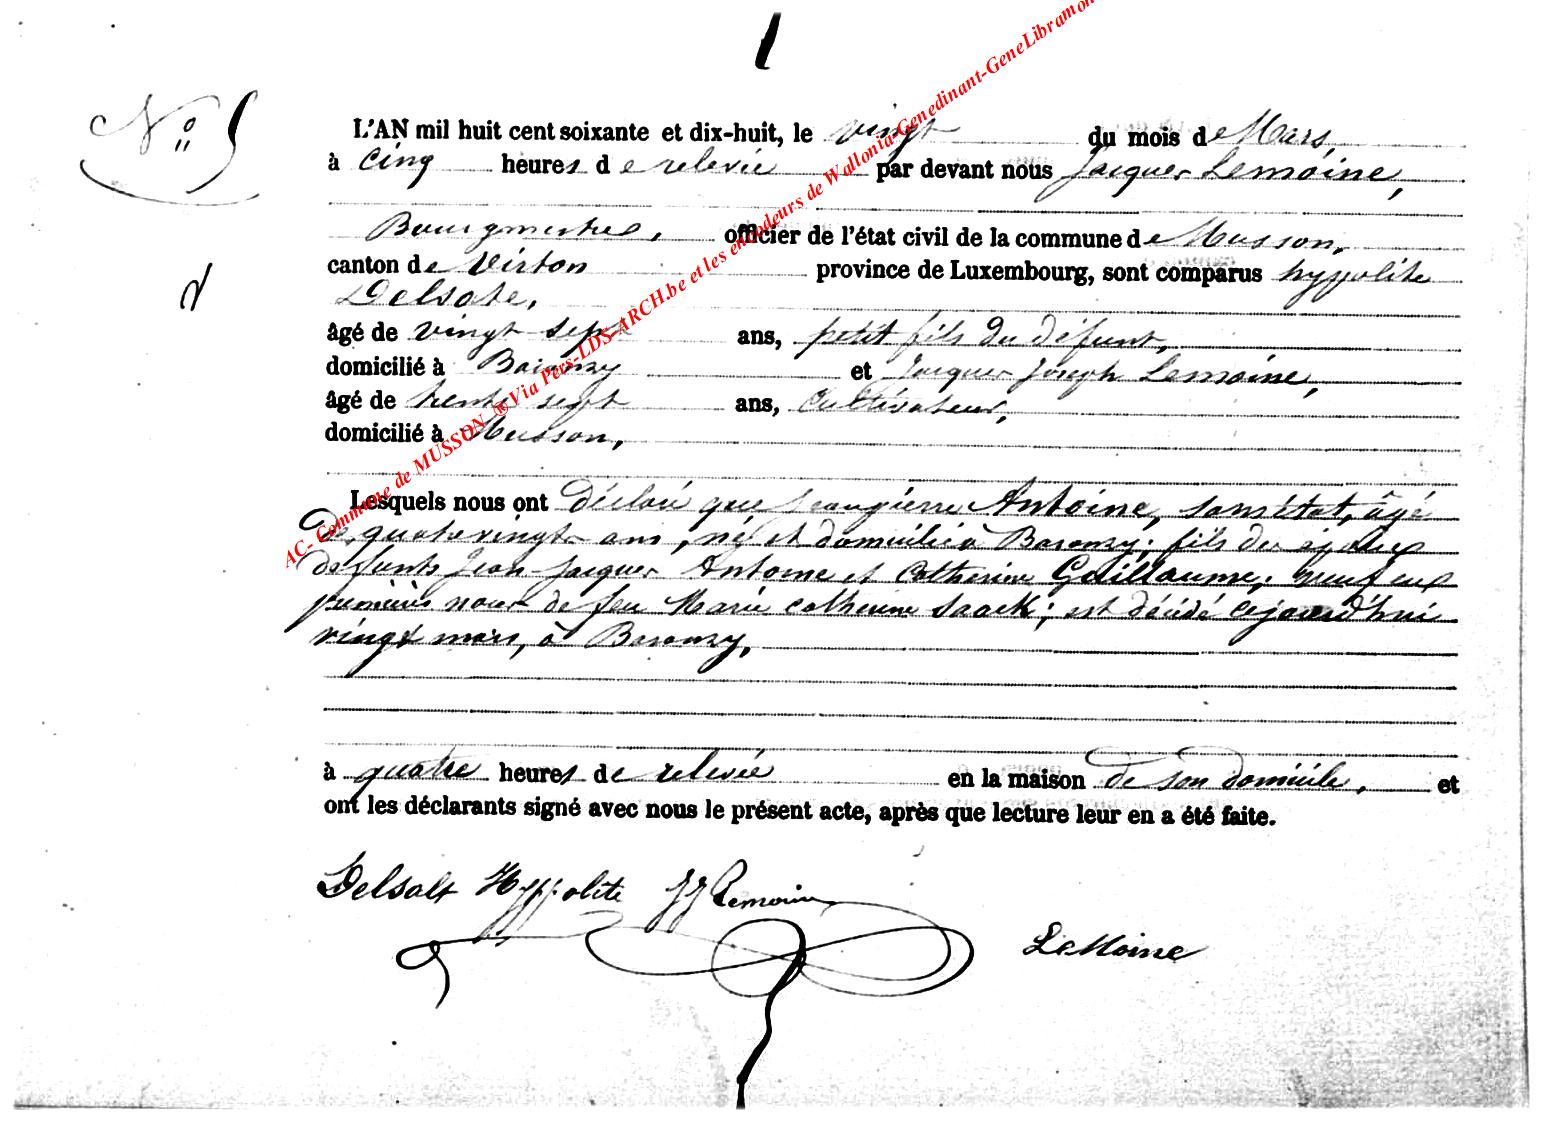 N° 5
L'AN mil huit cent soixante et dix-huit, le vingt du mois de Mars,
à cinq heures de relevée par devant nous Jacques Lemoine,
Bourgmestre, officier de l'état civil de la commune de Musson,
canton de Virton province de Luxembourg, sont comparus hyppolite
Delsate,
âgé de vingt sept ans, petit fils du défunt,
domicilié à Baranzy et Jacques Joseph Lemoine,
âgé de trente sept ans, cultivateur,
domicilié à Musson,
Lesquels nous ont déclaré que Jean pierre Antoine, sans état, âgé
de quatre vingt ans, né et domicilié à Baranzy; fils des époux
défunts Jean Jacques Antoine et Catherine Guillaume; veuf en
premières noces de feu Marie Catherine Saack; est décédé cejourd'hui
vingt mars, à Baranzy,
à quatre heures de relevée en la maison de son domicile, et
ont les déclarants signé avec nous le présent acte, après que lecture leur en a été faite.
Delsate Hyppolite JJ Lemoine
LeMoine
AC- Commune de MUSSON ®Via Pers-LDS-ARCH.be et les encodeurs de Wallonia-Genedinant-GeneLibramon